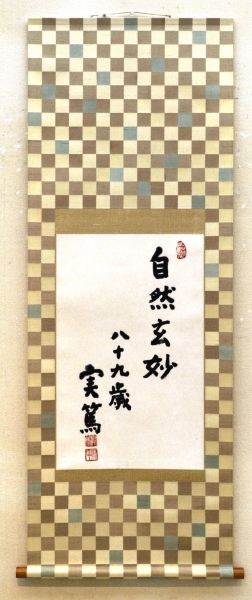 自然玄妙
八十九歳
実篤